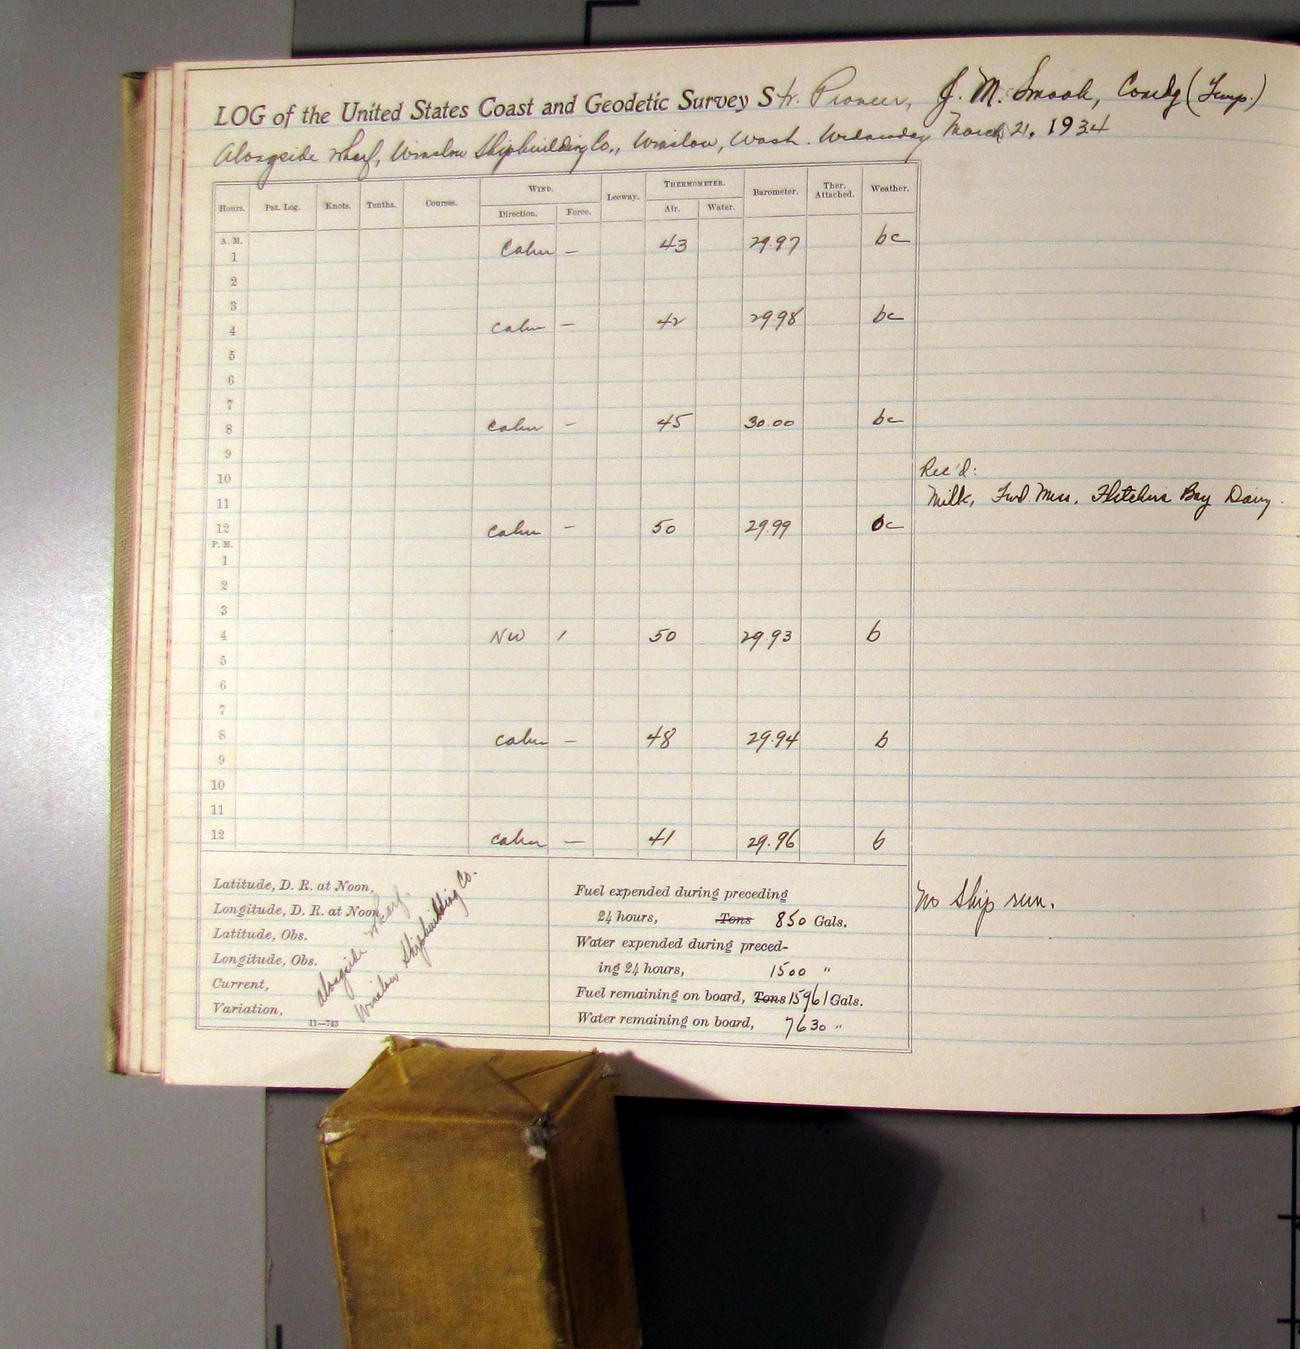 LOG of the United States Coast and Geodetic Survey Str. Pioneer, J. M. Smook, Comdg (Temp.)
Alongside wharf, Winslow Shipbuilding Co., Winslow, Wash. Wednesday March 21, 1934
Hours. Pat. Log. Knots. Tenths. Courses. WIND. Leeway. THERMOMETER. Barometer. Ther. Attached. Weather.
Direction. Force. Air. Water.
A. M.
1 Calm — 43 29.97 bc
2
3
4 calm — 42 29.98 bc
5
6
7
8 calm — 45 30.00 bc
9
10 Rec'd:
11 Milk, Fwd. Mess, Fletchers Bay Dairy.
12 calm — 50 29.99 bc
P. M.
1
2
3
4 NW 1 50 29.93 b
5
6
7
8 calm — 48 29.94 b
9
10
11
12 calm — 41 29.96 b
Latitude, D. R. at Noon,
Longitude, D. R. at Noon,
Latitude, Obs.
Longitude, Obs.
Current,
Variation,
alongside wharf
Winslow Shipbuilding Co.
11—743
Fuel expended during preceding
24 hours, Tons 850 Gals.
Water expended during preced-
ing 24 hours, 1500 "
Fuel remaining on board, Tons 15961 Gals.
Water remaining on board, 7630 "
No ship run.